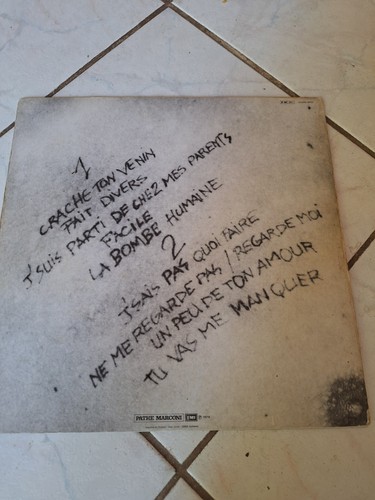 1
CRACHE TON VENIN
FAIT DIVERS
J'SUIS PARTI DE CHEZ MES PARENTS
FACILE
LA BOMBE HUMAINE
2
J'SAIS PAS QUOI FAIRE
NE ME REGARDE PAS / REGARDE MOI
UN PEU DE TON AMOUR
TU VAS ME MANQUER
PATHE MARCONI EMI